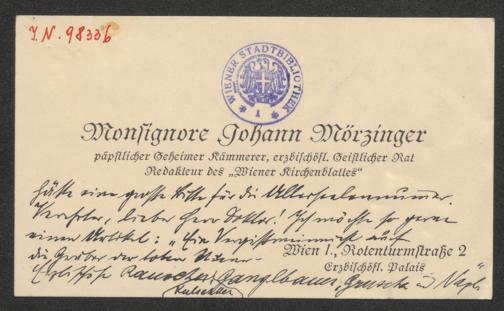 I.N. 98336
WIENER STADTBIBLIOTHEK
1
Monsignore Johann Mörzinger
päpstlicher Geheimer Kämmerer, erzbischöfl. Geistlicher Rat
Redakteur des „Wiener Kirchenblattes"
hätte eine große Bitte für die Allerseelennummer.
Verehrter, lieber Herr Doktor! Ich möchte so gerne
einen Artikel: „Ein Vergißmeinnicht auf
Wien I., Rotenturmstraße 2
die Gräber der toten Wiener
Erzbischöfl. Palais
Erzbischöfe Rauscher, Ganglbauer, Gruscha u Nagl"
Kutschker